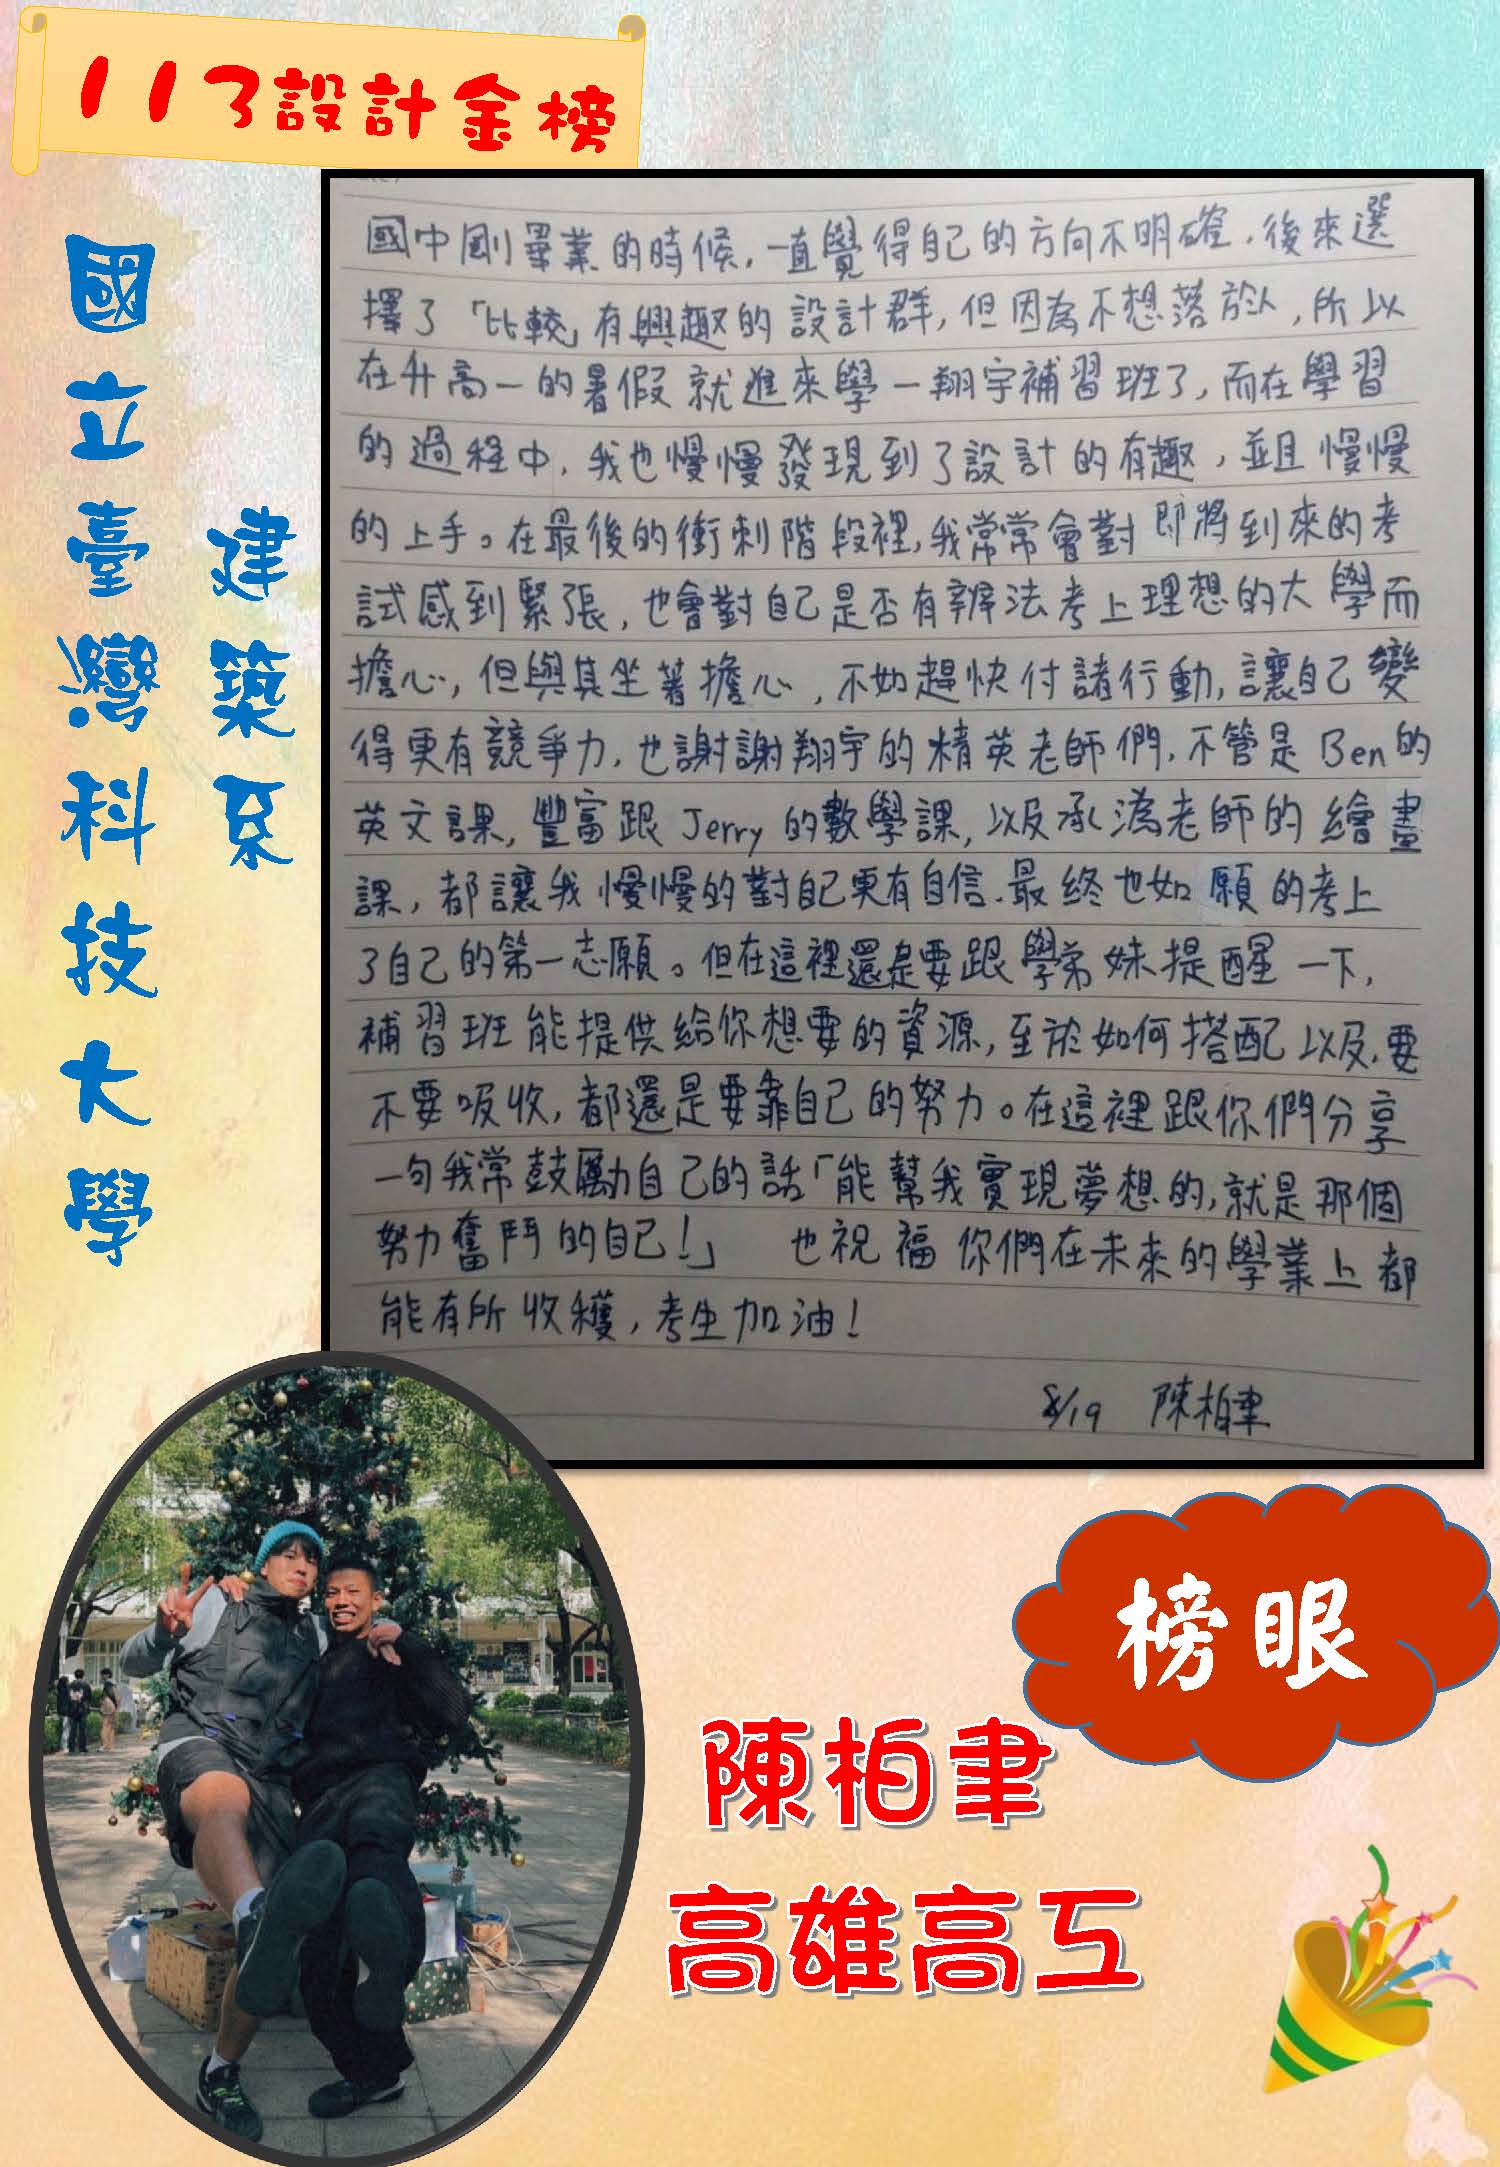 113設計金榜
國立臺灣科技大學
建築系
國中剛畢業的時候,一直覺得自己的方向不明確,後來選
擇了「比較」有興趣的設計群,但因為不想落於人,所以
在升高一的暑假就進來學一翔宇補習班了,而在學習
的過程中,我也慢慢發現到了設計的有趣,並且慢慢
的上手。在最後的衝刺階段裡,我常常會對即將到來的考
試感到緊張,也會對自己是否有辦法考上理想的大學而
擔心,但與其坐著擔心,不如趕快付諸行動,讓自己變
得更有競爭力,也謝謝翔宇的精英老師們,不管是Ben的
英文課,豐富跟Jerry的數學課,以及承溈老師的繪畫
課,都讓我慢慢的對自己更有自信.最終也如願的考上
了自己的第一志願。但在這裡還是要跟學弟妹提醒一下,
補習班能提供給你想要的資源,至於如何搭配以及,要
不要吸收,都還是要靠自己的努力。在這裡跟你們分享
一句我常鼓勵自己的話「能幫我實現夢想的,就是那個
努力奮鬥的自己!」 也祝福你們在未來的學業上都
能有所收穫,考生加油!
8/19 陳柏聿
榜眼
陳柏聿
高雄高工